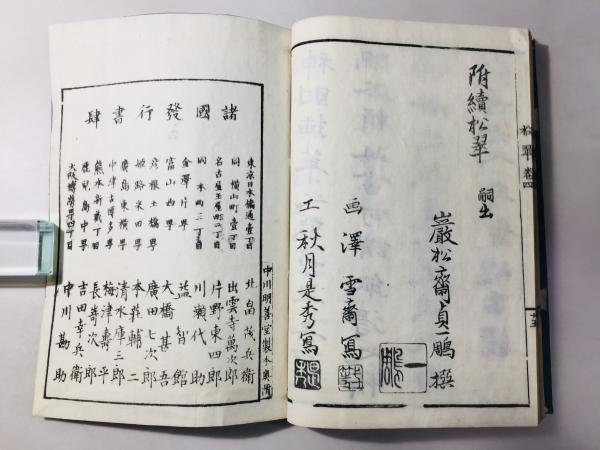 附續松翠 嗣出
巖松齋貞一鵰撰
画澤雪齋寫
工秋月是秀寫
松翠 卷四
諸國發行書肆
東京日本橋通壹丁目 北畠茂兵衛
同橫山町壹丁目 出雲寺萬次郎
名古屋玉屋町二丁目 片野東四郎
同本町二丁目 川瀬代助
金澤片學 益智館
富山西學 大橋甚吾
彦根土橋學 廣田七次郎
姫路米田學 本莊輔二
廣島東橫學 清水庫三郎
中津古博多學 梅津壽平
熊本新貳丁目 長﨑次郎
鹿兒島中學 吉田幸兵衛
大阪博勞町四丁目 中川勘助
中川明善堂製本奥